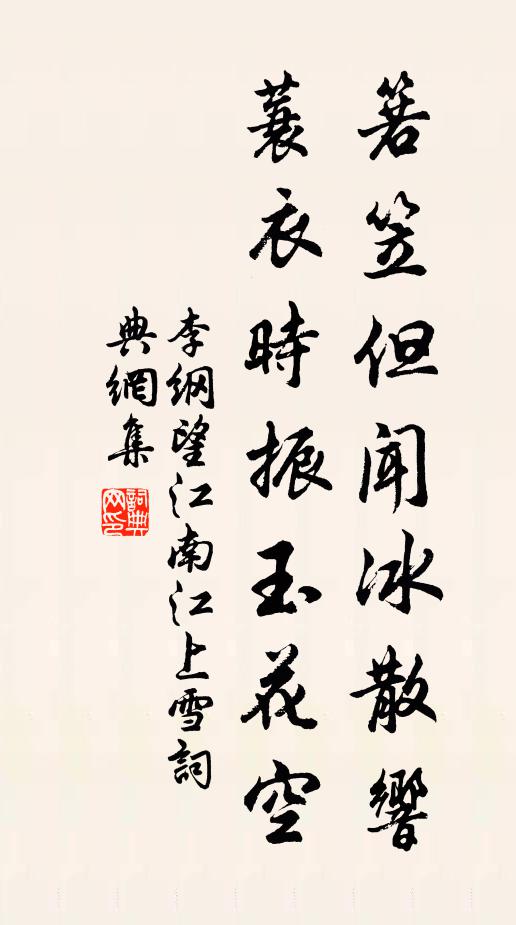 箬笠但聞冰散響
蓑衣時振玉花空
李綱望江南江上雪詞
典網集
詞典網印